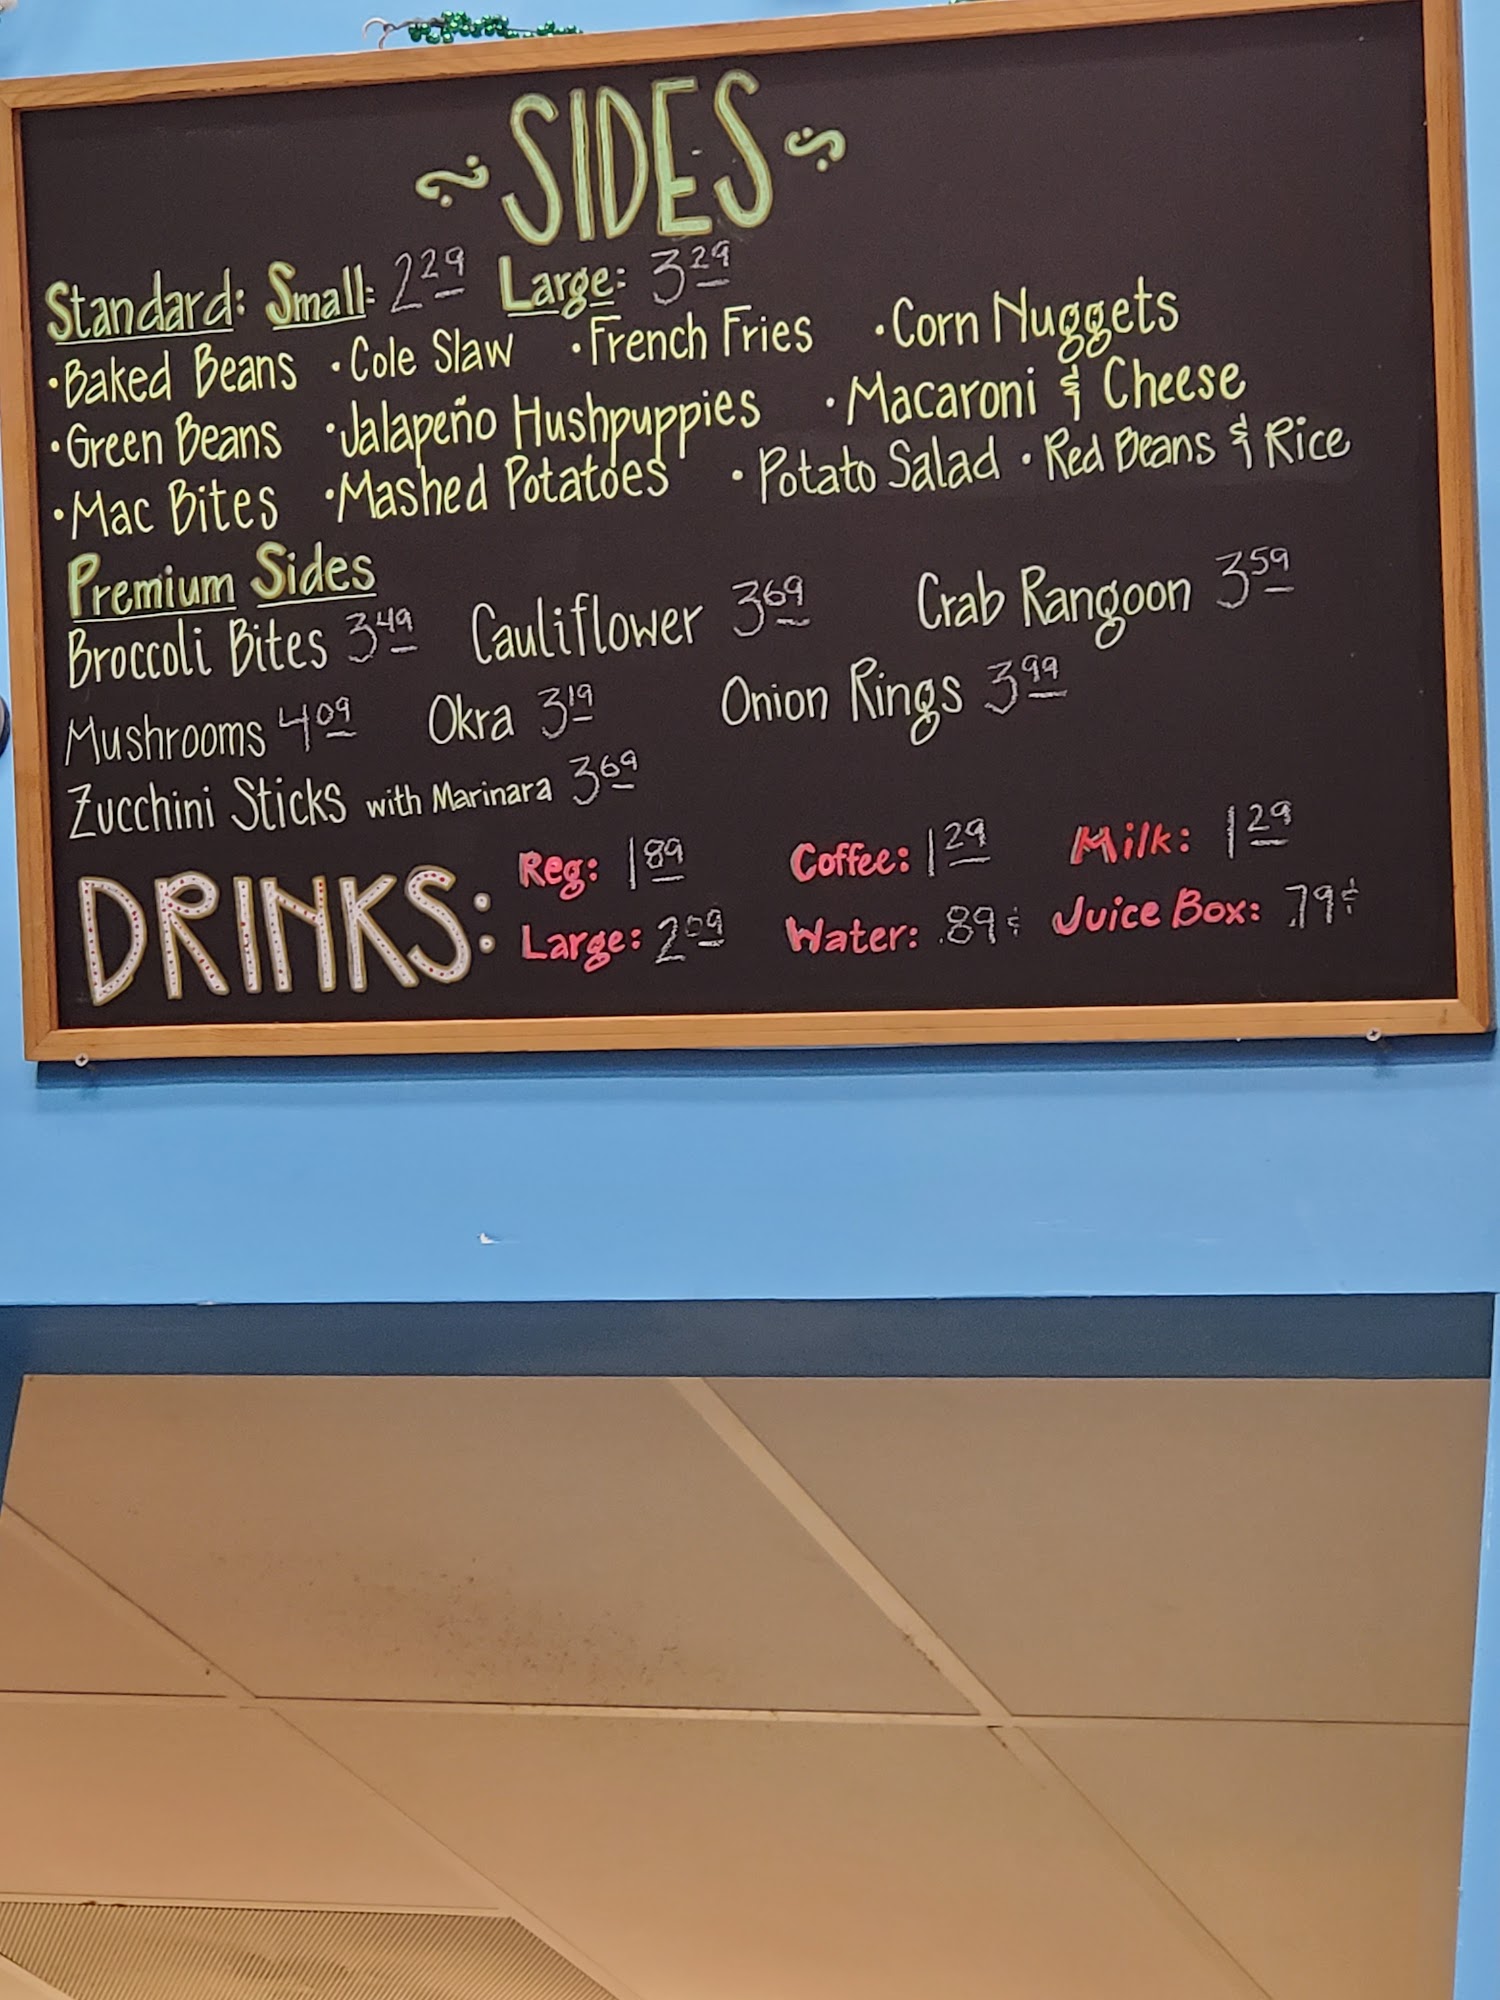 SIDES
Standard: Small: 2.29 Large: 3.29
• Baked Beans • Cole Slaw • French Fries • Corn Nuggets
• Green Beans • Jalapeño Hushpuppies • Macaroni & Cheese
• Mac Bites • Mashed Potatoes • Potato Salad • Red Beans & Rice
Premium Sides
Broccoli Bites 3.49 Cauliflower 3.69 Crab Rangoon 3.59
Mushrooms 4.09 Okra 3.19 Onion Rings 3.99
Zucchini Sticks with Marinara 3.69
DRINKS: Reg: 1.89 Coffee: 1.29 Milk: 1.29
Large: 2.09 Water: .89¢ Juice Box: .79¢